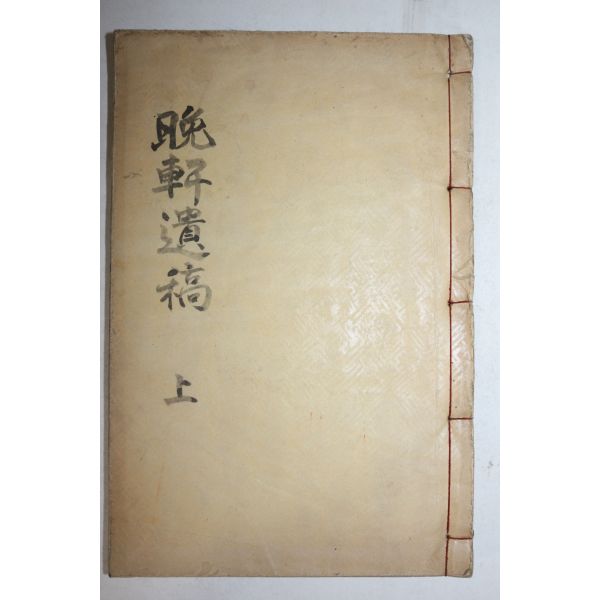 晩軒遺稿
上